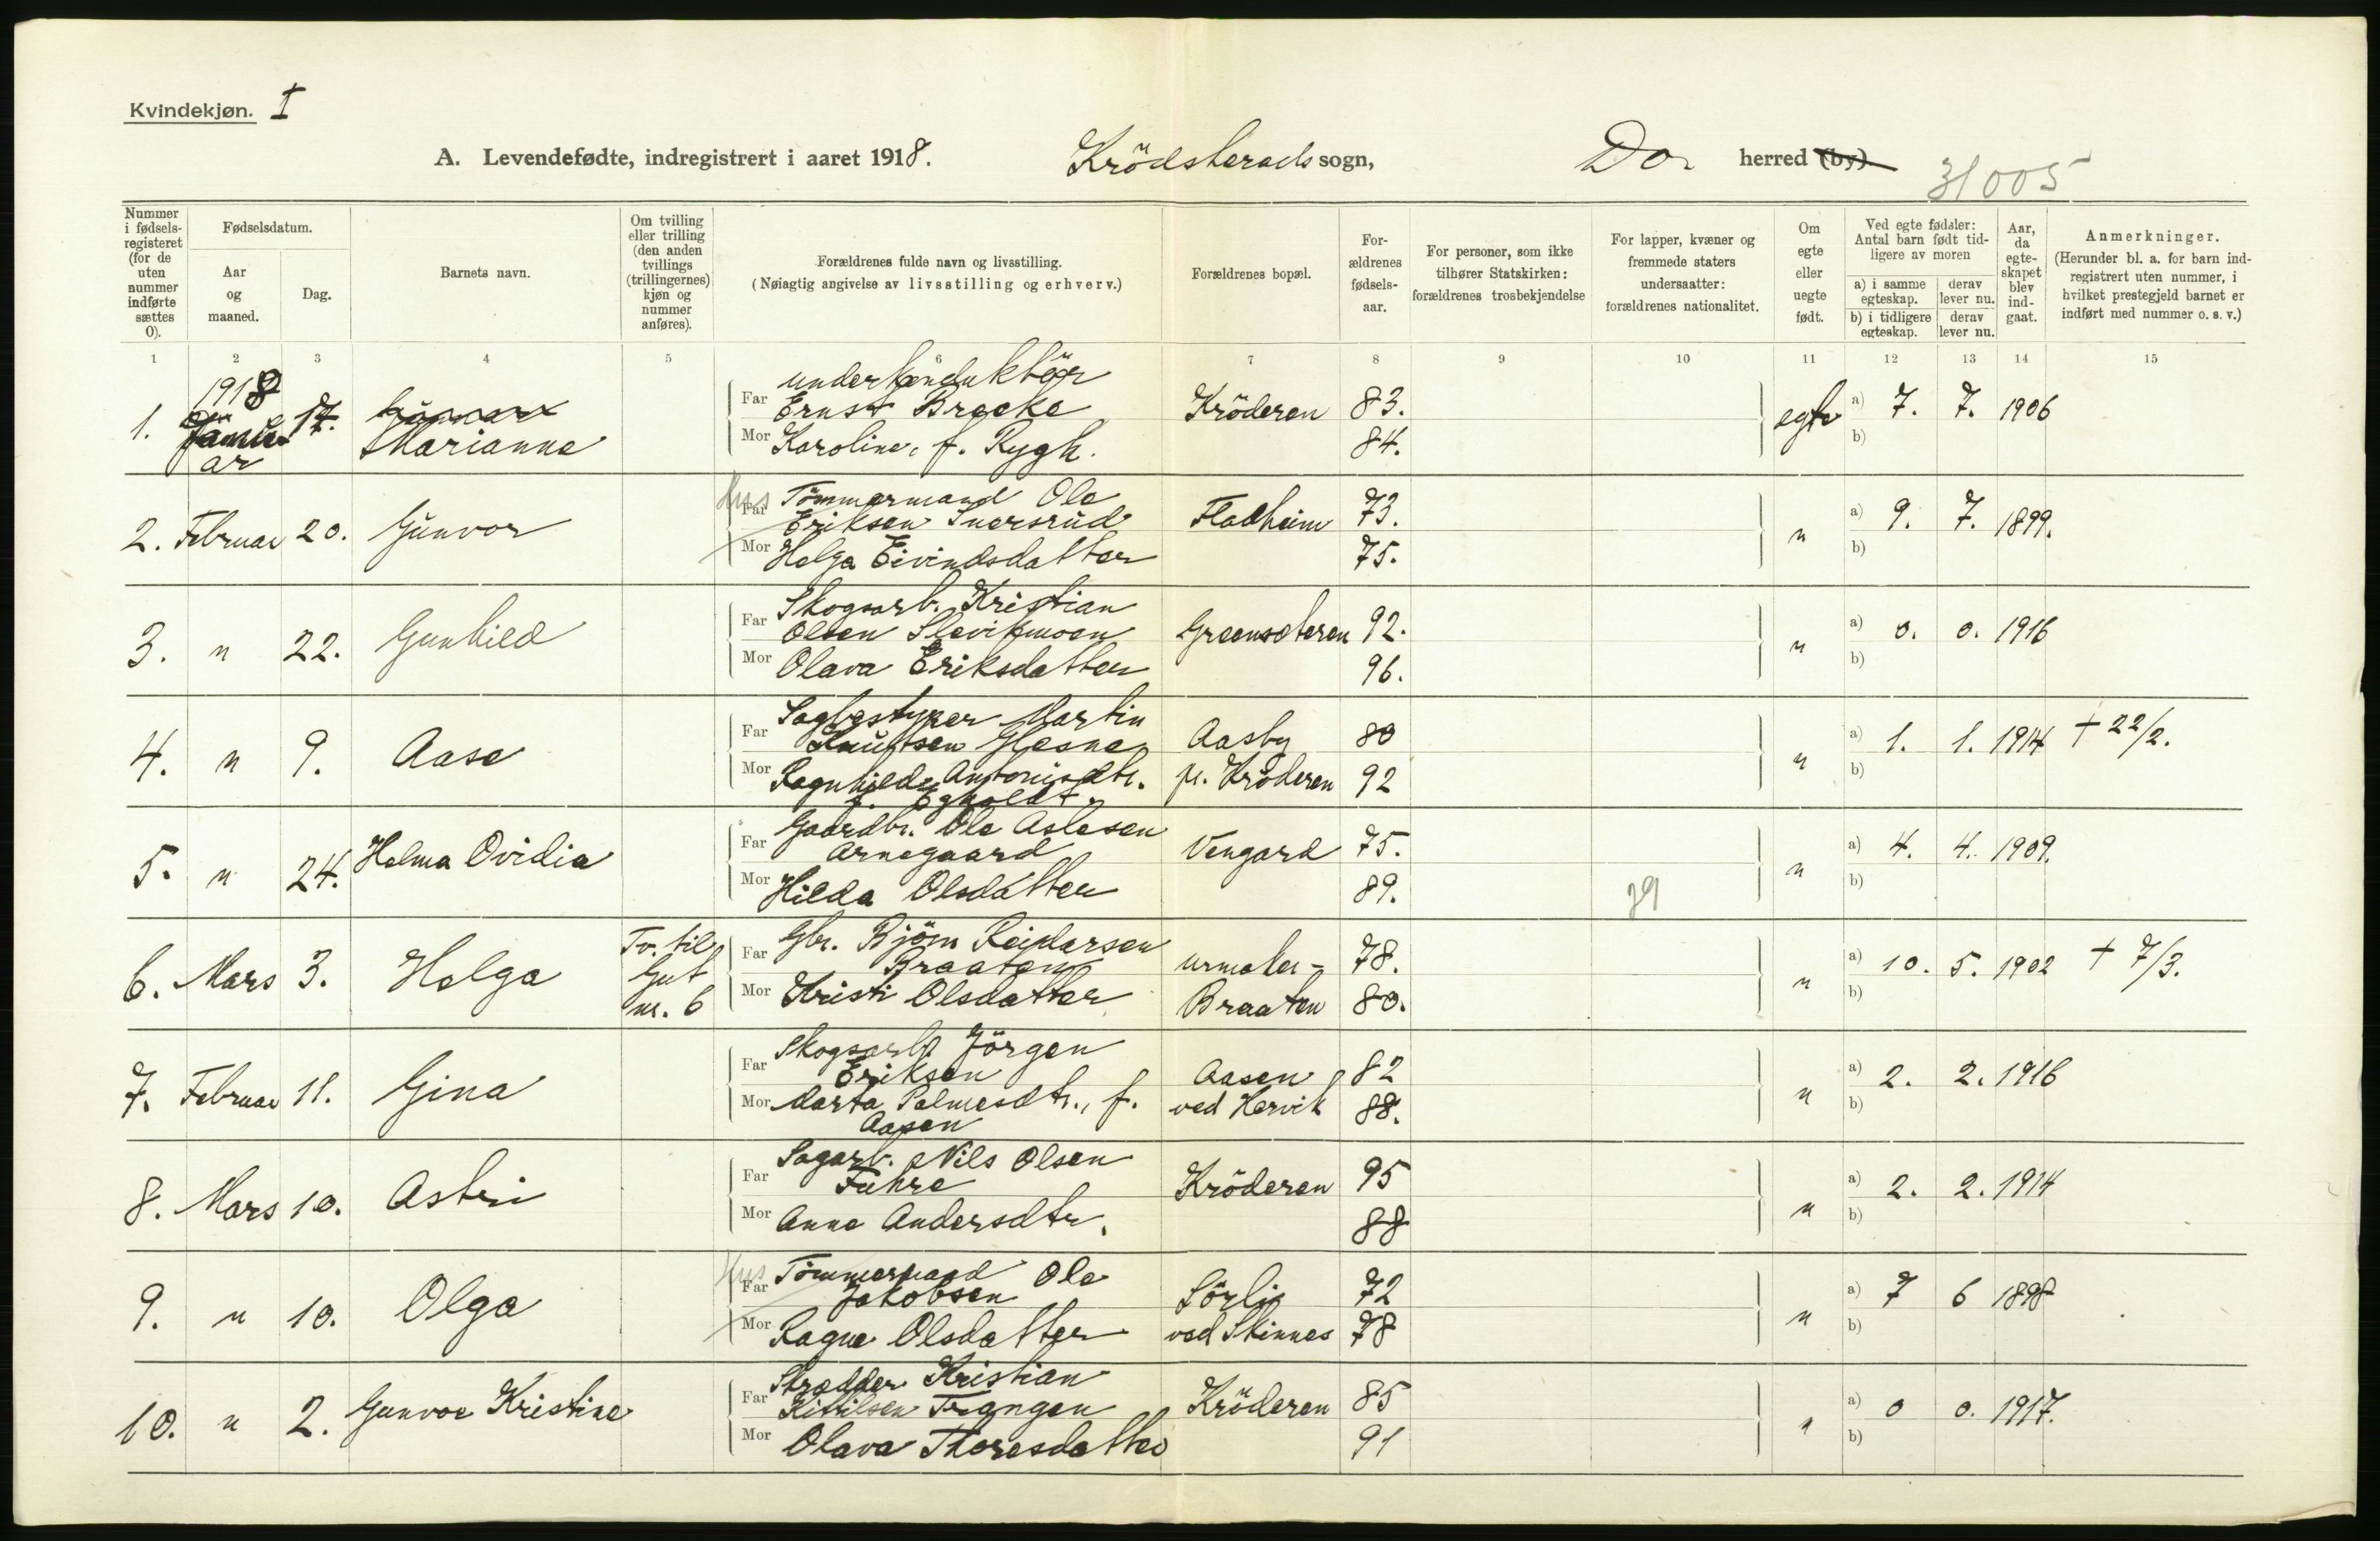 Kvindekjøn. I
A. Levendefødte, indregistrert i aaret 1918. Krödsherads sogn, Do. herred (by)
31005
Nummer i fødsels-registeret (for de uten nummer indførte sættes 0).
Fødselsdatum.
Aar og maaned.
Dag.
Barnets navn.
Om tvilling eller trilling (den anden tvillings (trillingernes) kjøn og nummer anføres).
Forældrenes fulde navn og livsstilling.
(Nøiagtig angivelse av livsstilling og erhverv.)
Forældrenes bopæl.
For-ældrenes fødsels-aar.
For personer, som ikke tilhører Statskirken: forældrenes trosbekjendelse
For lapper, kvæner og fremmede staters undersaatter: forældrenes nationalitet.
Om egte eller uegte født.
Ved egte fødsler: Antal barn født tid-ligere av moren
a) i samme egteskap.
derav lever nu.
b) i tidligere egteskap.
derav lever nu.
Aar, da egte-skapet blev ind-gaat.
Anmerkninger.
(Herunder bl. a. for barn ind-registrert uten nummer, i hvilket prestegjeld barnet er indført med nummer o. s. v.)
1 2 3 4 5 6 7 8 9 10 11 12 13 14 15
1918
underkonduktör
1. Januar 17. Marianne Far Ernst Bracke Kröderen 83. egte a) 7. 7. 1906
Mor Karoline, f. Rygh. 84. b)
Hus Tömmermand Ole
2. Februar 20. Gunvor Far Eriksen Snersrud Fladheim 73. " a) 9. 7. 1899.
Mor Helga Eivindsdatter 75. b)
Skogsarb. Kristian
3. " 22. Gunhild Far Olsen Slevikmoen Green­sæteren 92. " a) 0. 0. 1916
Mor Olava Eriksdatter 96. b)
Sagbestyrer Martin
4. " 9. Aase Far Knutsen Glesne Aasby 80 " a) 1. 1. 1914 † 22/2.
Mor Ragnhild Antonisdtr. pr. Kröderen 92 b)
f. Egholdt.
Gaardbr. Ole Aslesen
5. " 24. Helma Ovidia Far Arnegaard Vengard 75. " a) 4. 4. 1909.
Mor Hilda Olsdatter 89. 29 b)
6. Mars 3. Helga Tv. til Gut nr. 6 Far Gbr. Björn Reidarsen
Braaten urmaker- 78. " a) 10. 5. 1902 † 7/3.
Mor Kristi Olsdatter Braaten 80. b)
Skogsarb. Jörgen
7. Februar 11. Gina Far Eriksen Aasen 82 " a) 2. 2. 1916
Mor Marta Palmesdtr., f. ved Hervik 88. b)
Aasen
Sagarb. Nils Olsen
8. Mars 10. Astri Far Fuhre Kröderen 95 " a) 2. 2. 1914
Mor Anne Andersdtr. 88 b)
Hus Tömmermand Ole
9. " 10. Olga Far Jakobsen Sörli 72 " a) 7 6 1898
Mor Ragne Olsdatter ved Skinnes 78 b)
Skrædder Kristian
10. " 2. Gunvor Kristine Far Kittilsen Trangen Kröderen 85 " a) 0 0. 1917.
Mor Olava Thoresdatter 91 b)